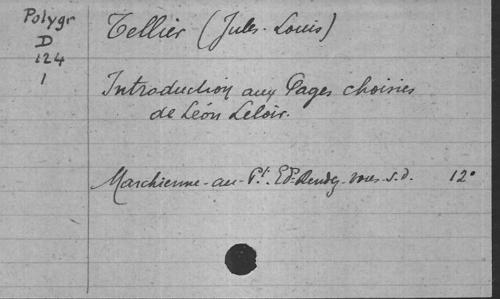 Polygr
D
124
1
Tellier (Jules-Louis)
Introduction aux Pages choisies
de Léon Leloir.
Marchienne-au-Pt. Edit. Rendez-vous s.d. 12°